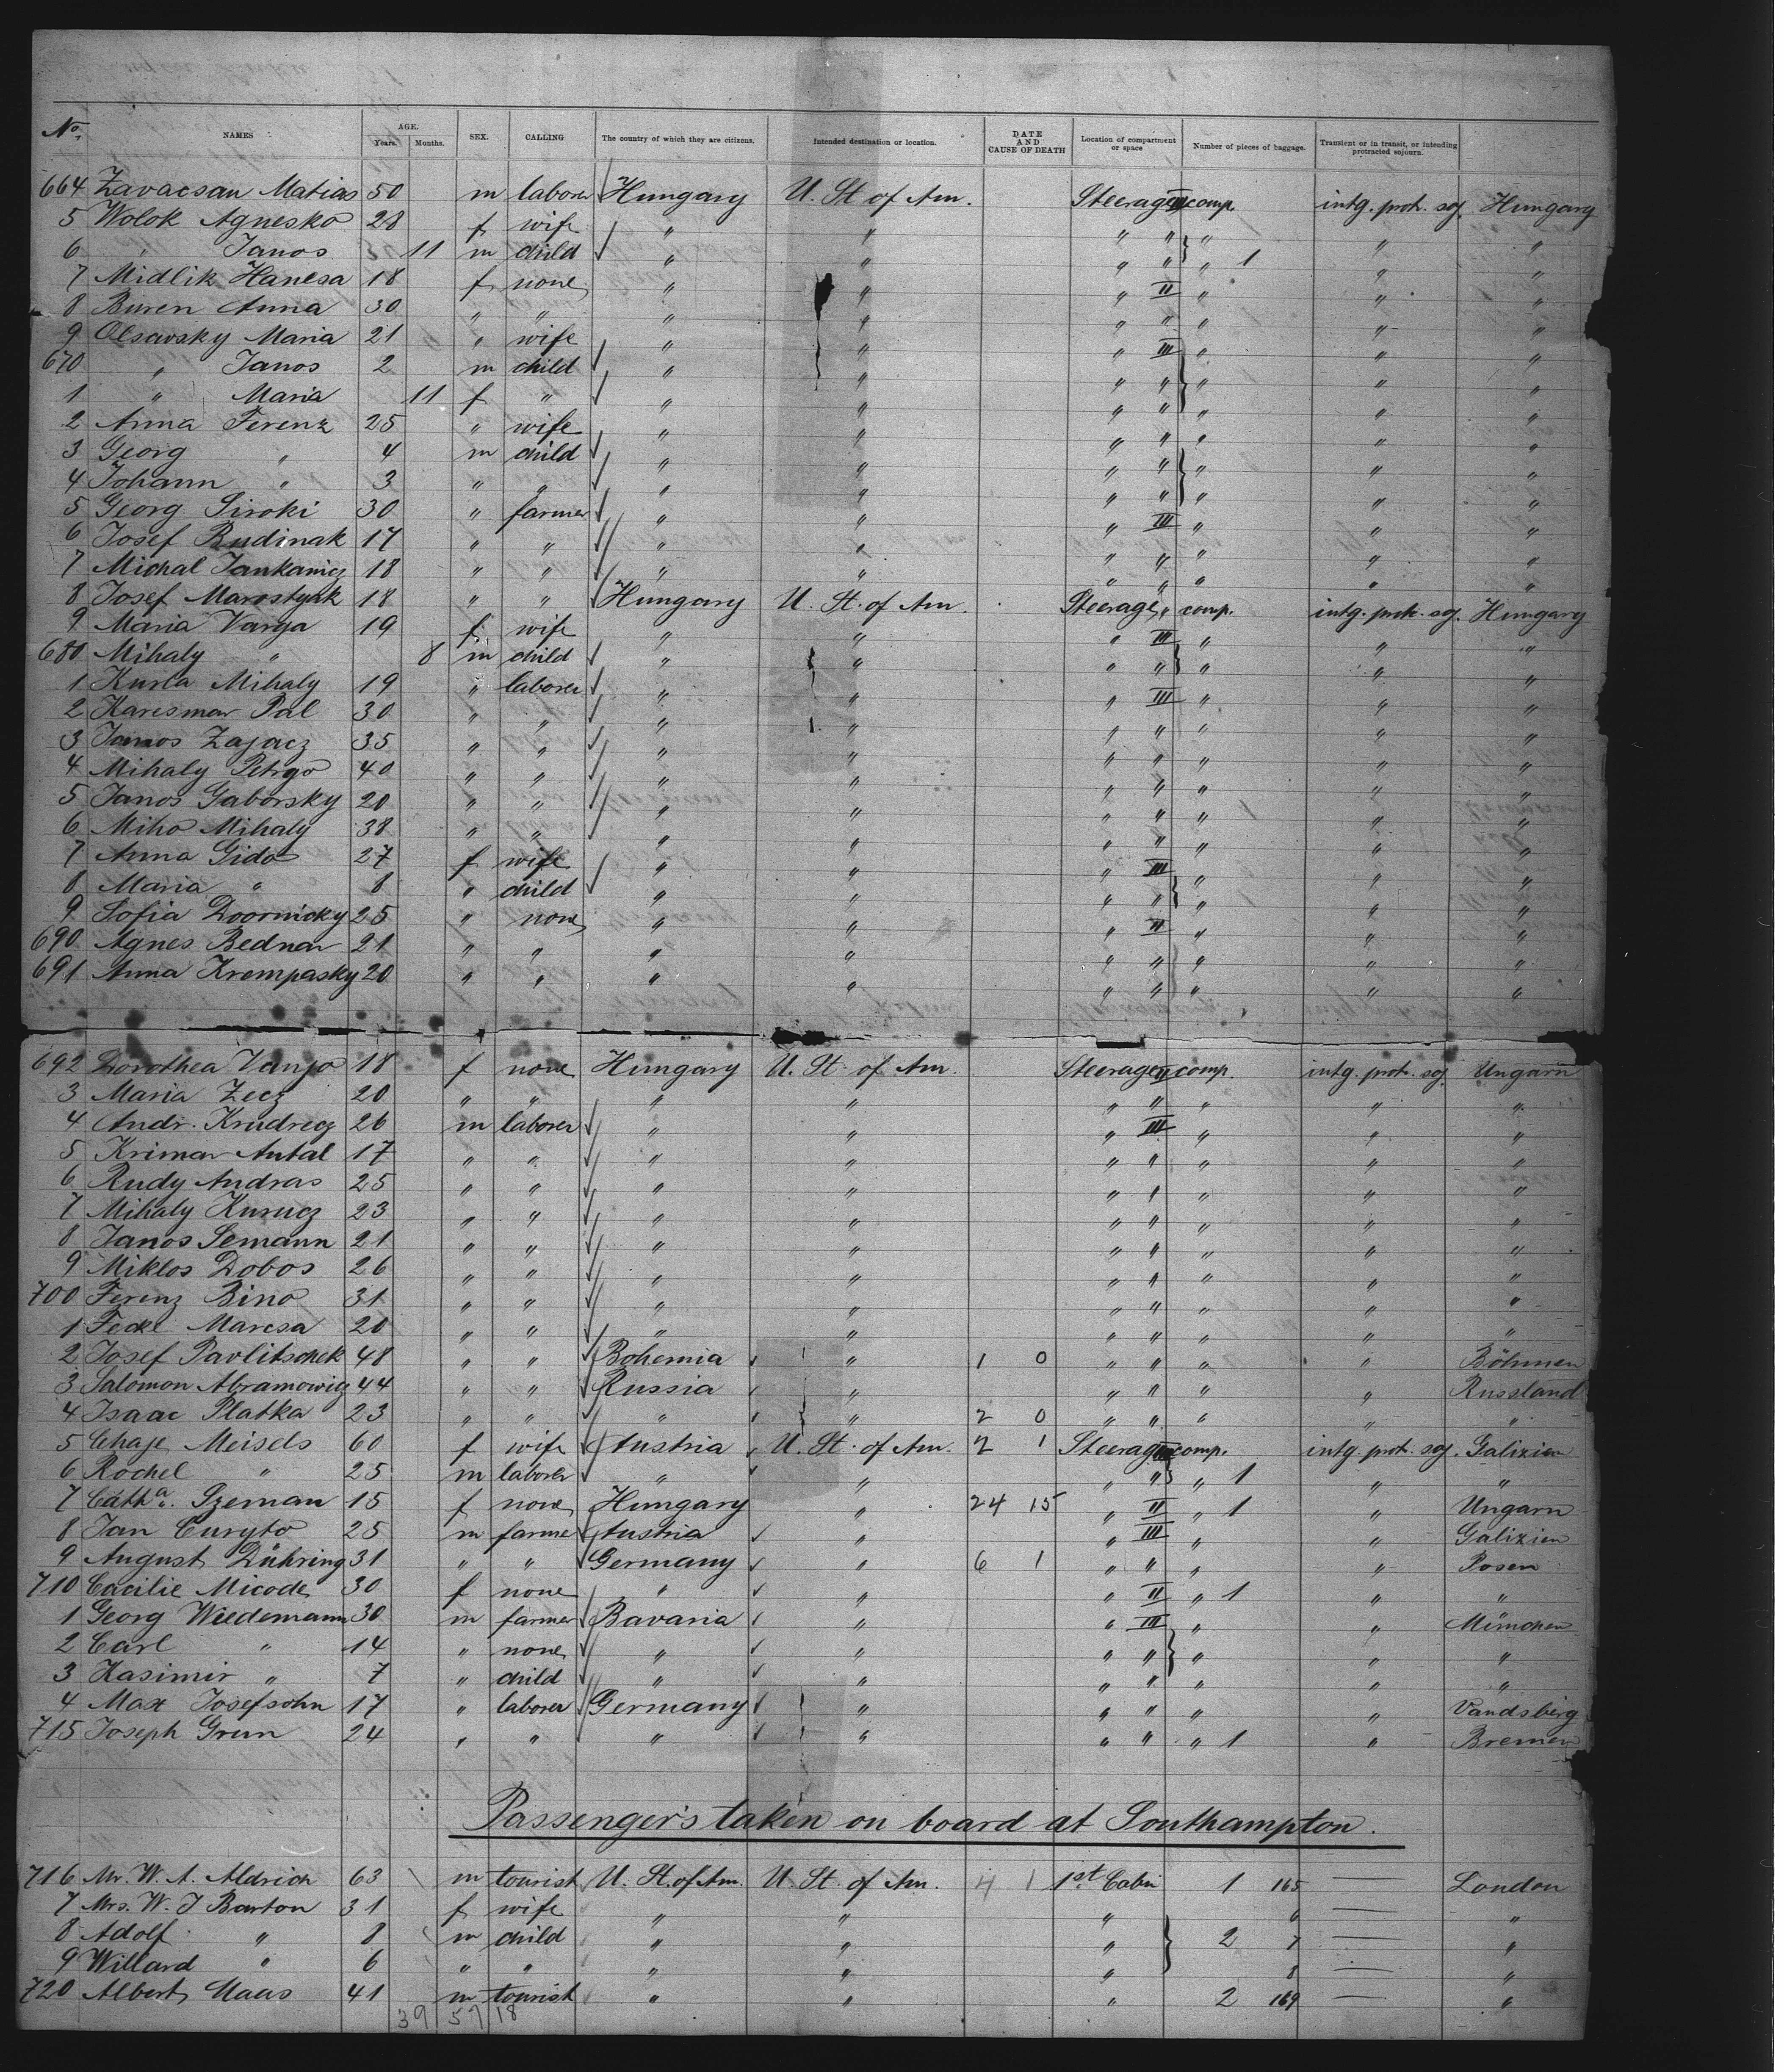 No. NAMES AGE. Years. Months. SEX. CALLING The country of which they are citizens. Intended destination or location. DATE AND CAUSE OF DEATH Location of compartment or space Number of pieces of baggage. Transient or in transit, or intending protracted sojourn.
664 Zavacsan Matias 50 m laborer Hungary U. St of Am. Steerage III comp. intg. prot. soj. Hungary
5 Wolok Agnesko 28 f wife " " " " " " "
6 " Janos 11 m child " " " " " 1 " "
7 Midlik Hanesa 18 f none " " " II " " "
8 Buren Anna 30 " " " " " " " " "
9 Olsavsky Maria 21 " wife " " " III " " "
670 " Janos 2 m child " " " " " " "
1 " Maria 11 f " " " " " " " "
2 Anna Ferenz 25 " wife " " " " " " "
3 Georg " 4 m child " " " " " " "
4 Johann " 3 " " " " " " " " "
5 Georg Siroki 30 " farmer " " " III " " "
6 Josef Budinak 17 " " " " " " " " "
7 Michal Jankanicz 18 " " " " " " " " "
8 Josef Marostyak 18 " " Hungary U. St. of Am. Steerage " comp. intg. prot. soj. Hungary
9 Maria Varga 19 f wife " " " III " " "
680 Mihaly " 8 m child " " " " " " "
1 Kurla Mihaly 19 " laborer " " " III " " "
2 Karesmar Pal 30 " " " " " " " " "
3 Janos Zajacz 35 " " " " " " " " "
4 Mihaly Petrgo 40 " " " " " " " " "
5 Janos Gaborsky 20 " " " " " " " " "
6 Miho Mihaly 38 " " " " " " " " "
7 Anna Gido 27 f wife " " " III " " "
8 Maria " 8 " child " " " " " " "
9 Sofia Doornicky 25 " none " " " II " " "
690 Agnes Bednar 21 " " " " " " " " "
691 Anna Krempasky 20 " " " " " " " " "
692 Dorothea Vanjo 18 f none Hungary U. St. of Am. Steerage II comp. intg. prot. soj. Ungarn
3 Maria Zecz 20 " " " " " " " " "
4 Andr. Krudrecz 26 m laborer " " " III " " "
5 Krimar Antal 17 " " " " " " " " "
6 Rudy Andras 25 " " " " " " " " "
7 Mihaly Kurucz 23 " " " " " " " " "
8 Janos Semann 21 " " " " " " " " "
9 Miklos Dobos 26 " " " " " " " " "
700 Ferenz Bino 31 " " " " " " " " "
1 Feckl Marcsa 20 " " " " " " " " "
2 Josef Pavlitschek 48 " " Bohemia " 1 0 " " " " Böhmen
3 Salomon Abramowicz 44 " " Russia " " " " " Russland
4 Isaac Platka 23 " " " " 2 0 " " " " "
5 Chaje Meisels 60 f wife Austria U. St. of Am. 2 1 Steerage III comp. intg. prot. soj. Galizien
6 Rochel " 25 m laborer " " " " " 1 " "
7 Catha. Szeman 15 f none Hungary " 24 15 " II " 1 " Ungarn
8 Jan Curyto 25 m farmer Austria " " III " " Galizien
9 August Dühring 31 " " Germany " 6 1 " " " " Posen
710 Cacilie Micode 30 f none " " " II " 1 " "
1 Georg Wiedemann 30 m farmer Bavaria " " III " " München
2 Carl " 14 " none " " " " " " "
3 Kasimir " 7 " child " " " " " "
4 Max Josefsohn 17 " laborer Germany " " " " " Vandsbirg
715 Joseph Grun 24 " " " " " " " 1 " Bremen
Passenger's taken on board at Southampton.
716 Mr. W. A. Aldrich 63 m tourist U. St. of Am. U. St. of Am. 4 1 1st Cabin 1 165 — London
7 Mrs. W. J Barton 31 f wife " " " 6 — "
8 Adolf " 8 m child " " " 2 7 — "
9 Willard " 6 " " " " " 8 — "
720 Albert Maas 41 m tourist " " " 2 169 — "
39 57 18